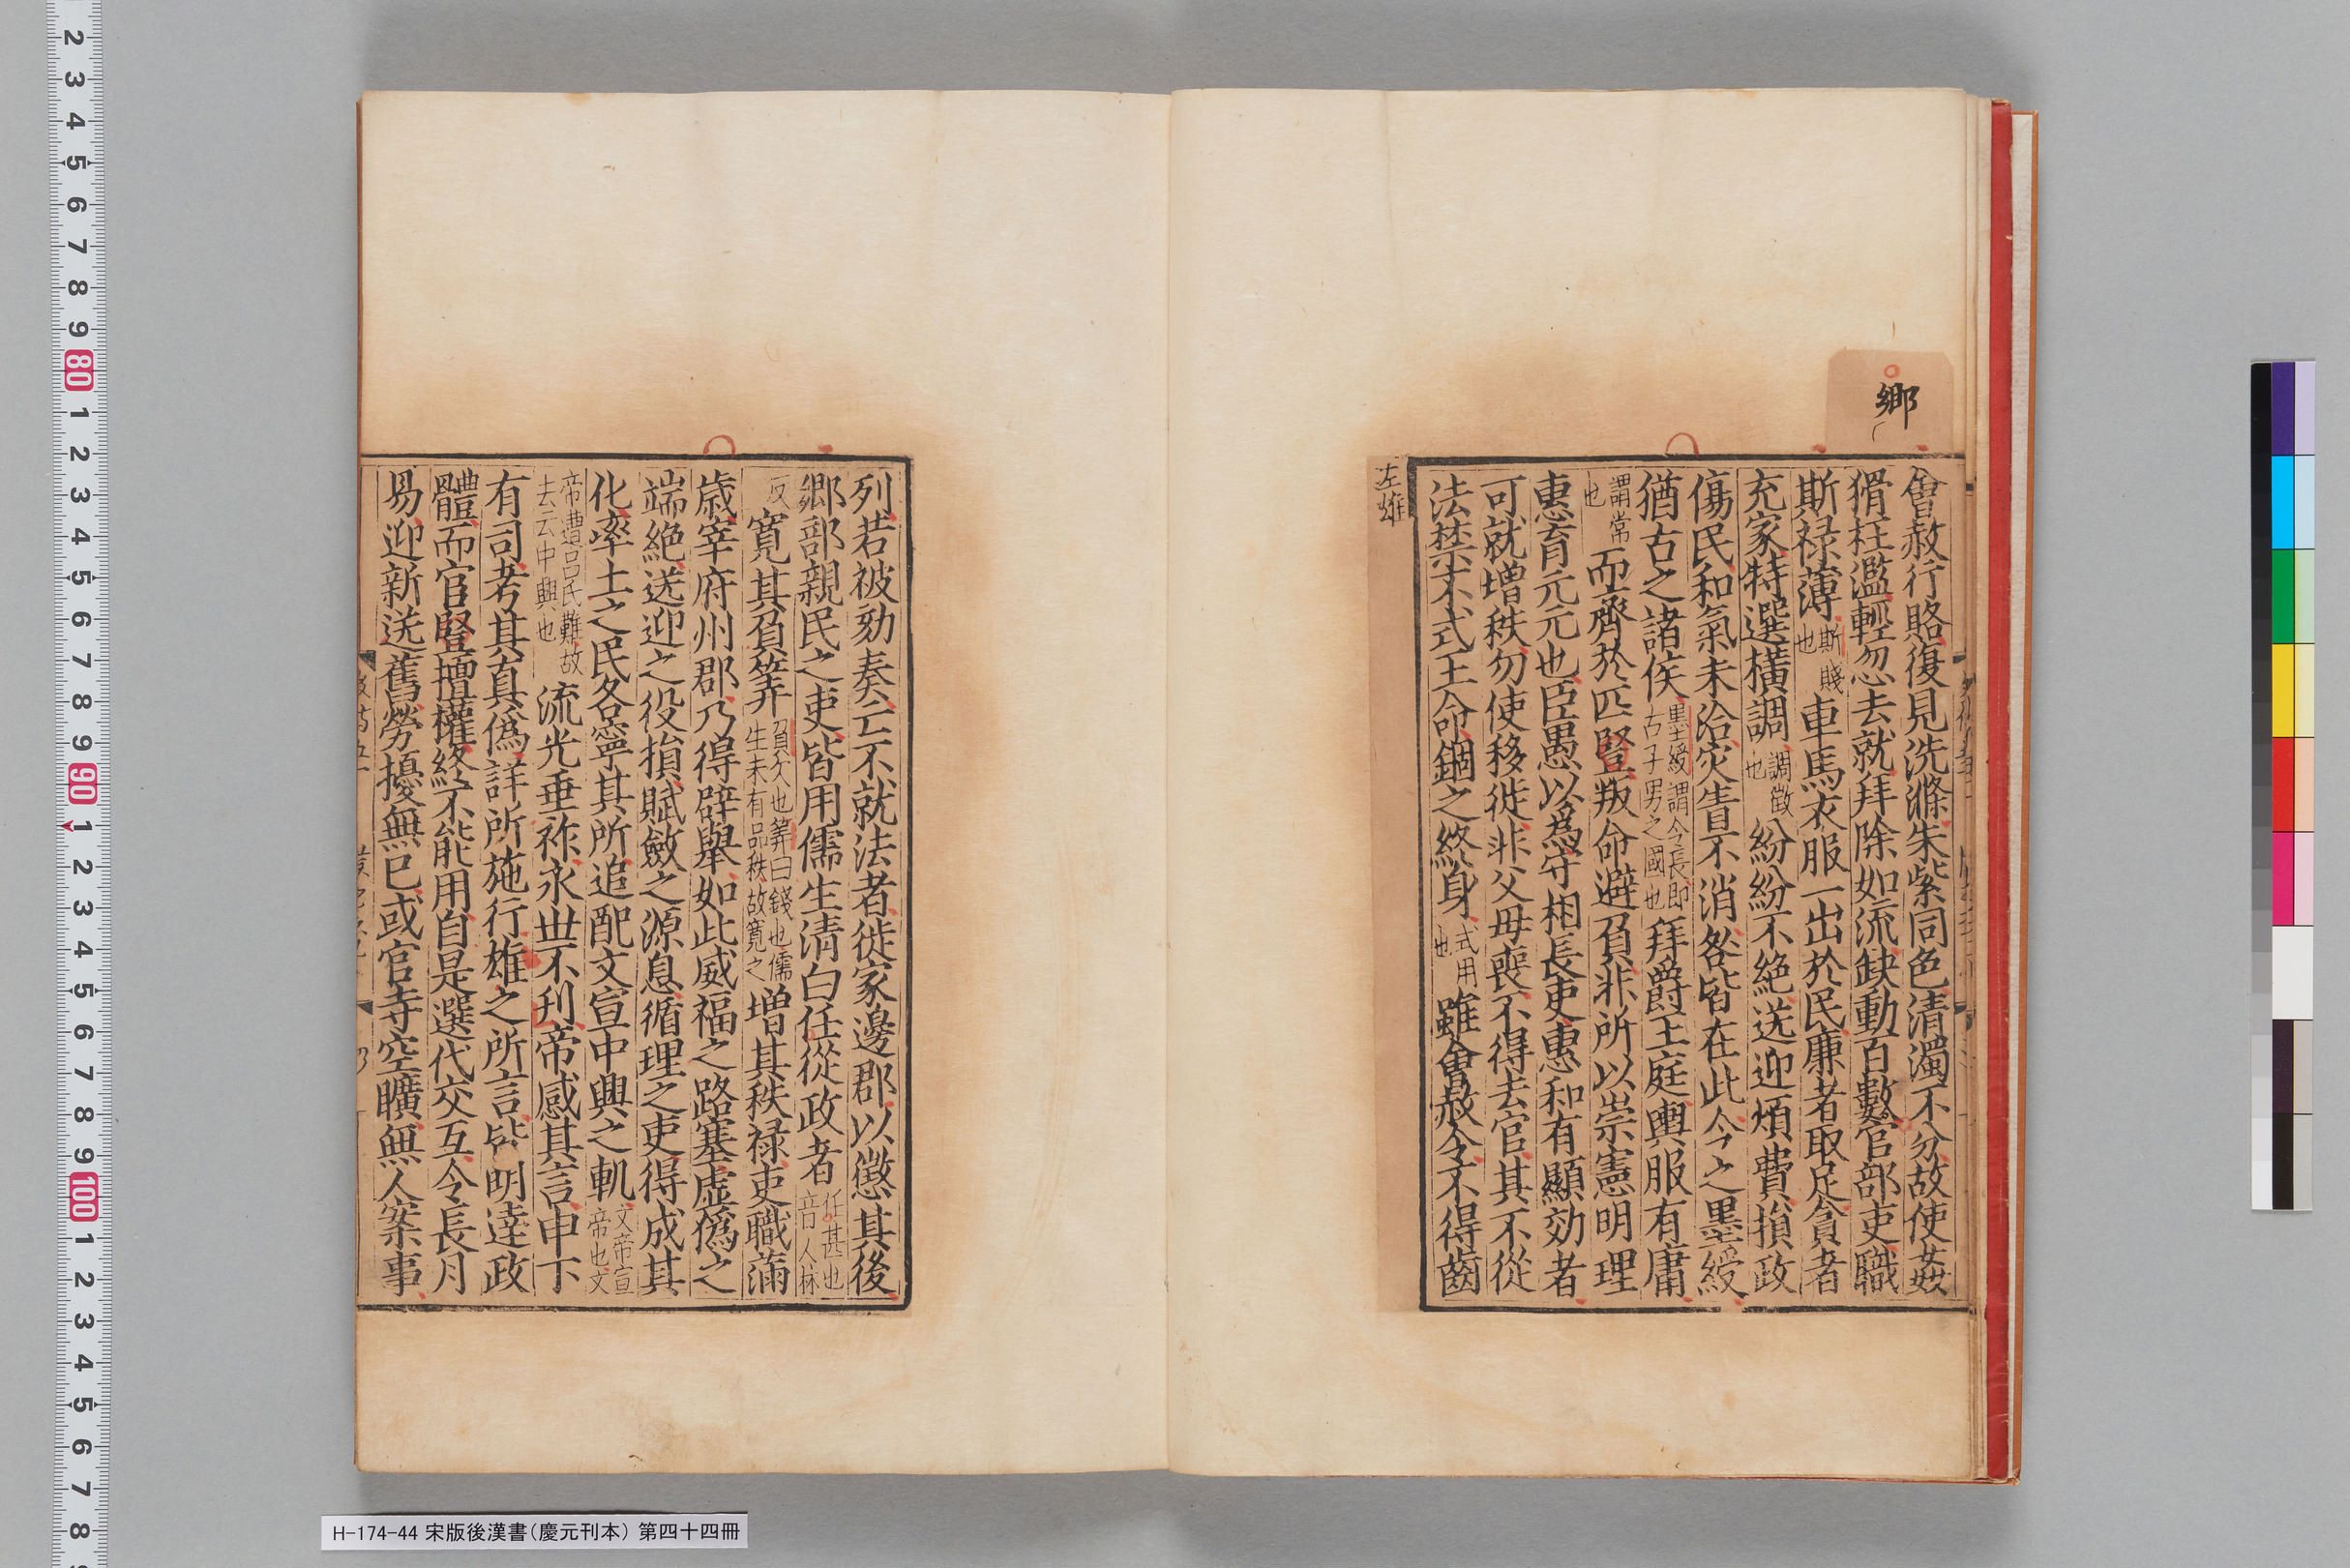 鄉
會赦行賂復見洗滌朱紫同色清濁不分故使姦
猾枉濫輕忽去就拜除如流缺動百數官部吏職
斯禄薄斯賤也車馬衣服一出於民廉者取足貪者
充家特選橫調調徵也紛紛不絶送迎煩費損政
傷民和氣未洽灾眚不消咎皆在此今之墨綬
猶古之諸侯墨綬謂令長即古子男之國也拜爵王庭輿服有庸
謂常也而齊於匹豎叛命避負非所以崇憲明理
惠育元元也臣愚以爲守相長吏惠和有顯効者
可就增秩勿使移徙非父母喪不得去官其不從
法禁不式王命錮之終身式用也雖會赦令不得齒
左雄
列若被劾奏亡不就法者徙家邊郡以懲其後
鄉部親民之吏皆用儒生清白任從政者任甚也音人林
反寬其負筭負欠也筭曰錢也儒生未有品秩故寬之增其秩禄吏職滿
歳宰府州郡乃得辟舉如此威福之路塞虚僞之
端絶送迎之役損賦斂之源息循理之吏得成其
化率土之民各寧其所追配文宣中興之軌文帝宣帝也文
帝遭呂氏難故去云中興也流光垂祚永丗不刋帝感其言申下
有司考其真僞詳所施行雄之所言皆明達政
體而官豎擅權終不能用自是選代交互令長月
易迎新送舊勞擾無已或官寺空曠無人案事
H-174-44 宋版後漢書（慶元刊本） 第四十四冊